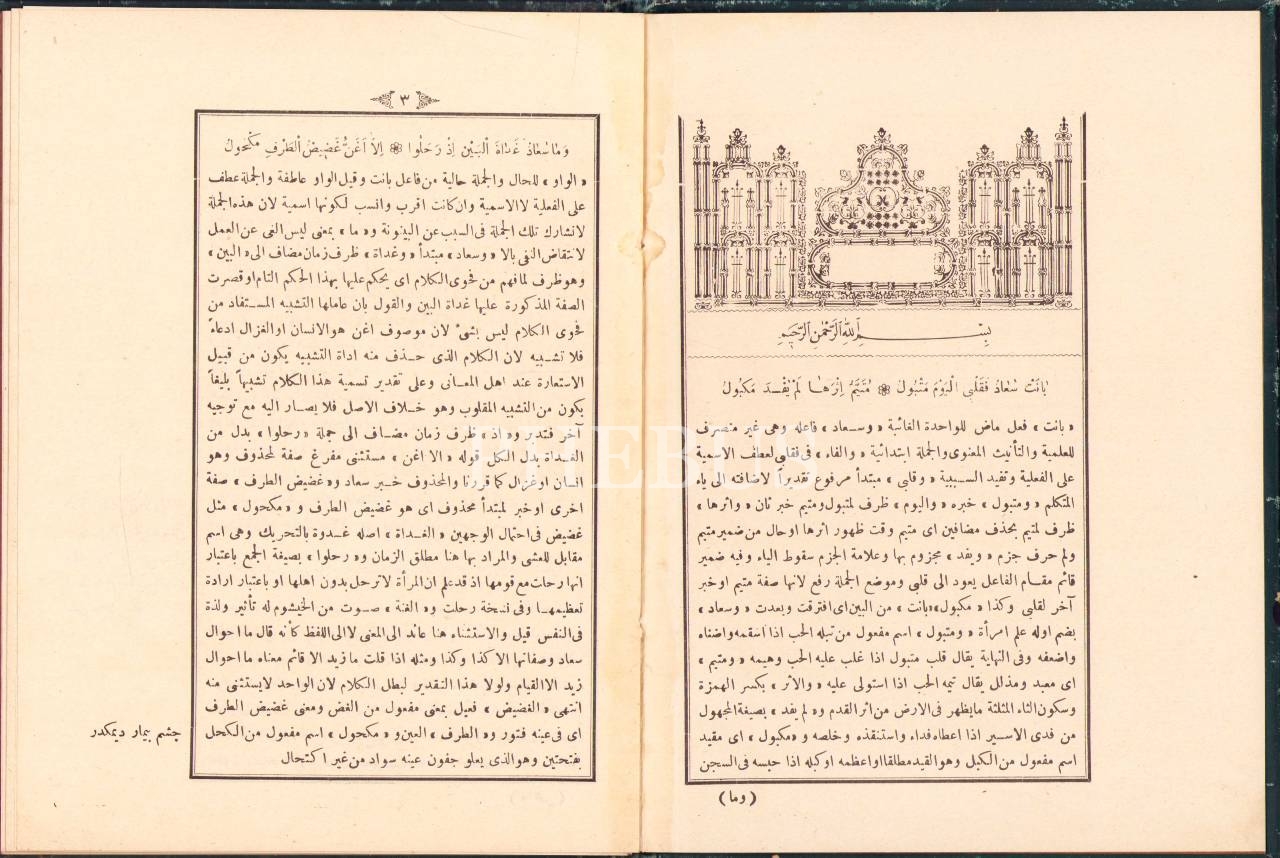 بِسْمِ اللهِ الرَّحْمٰنِ الرَّحِيمِ
بَانَتْ سُعَادُ فَقَلْبِى الْيَوْمَ مَتْبُولُ ❀ مُتَيَّمٌ اِثْرَهَا لَمْ يُفْدَ مَكْبُولُ
« بانت » فعل ماض للواحدة الغائبة « وسعاد » فاعله وهى غير منصرف
للعلمية والتأنيث المعنوى والجملة ابتدائية « والفاء » فى فقلبى لعطف الاسمية
على الفعلية وتفيد السببية « وقلبى » مبتدأ مرفوع تقديراً لاضافته الى ياء
المتكلم « ومتبول » خبره « واليوم » ظرف لمتبول ومتيم خبر ثان « واثرها »
ظرف لمتيم بحذف مضافين اى متيم وقت ظهور اثرها او حال من ضمير متيم
ولم حرف جزم « ويفد » مجزوم بها وعلامة الجزم سقوط الياء وفيه ضمير
قائم مقام الفاعل يعود الى قلبى وموضع الجملة رفع لانها صفة متيم او خبر
آخر لقلبى وكذا « مكبول » « بانت » من البين اى افترقت وبعدت « وسعاد »
بضم اوله علم امرأة « ومتبول » اسم مفعول من تبله الحب اذا اسقمه واضناه
واضعفه وفى النهاية يقال قلب متبول اذا غلب عليه الحب وهيمه « ومتيم »
اى معبد ومذلل يقال تيمه الحب اذا استولى عليه « والاثر » بكسر الهمزة
وسكون الثاء المثلثة ما يظهر فى الارض من اثر القدم و« لم يفد » بصيغة المجهول
من فدى الاسير اذا اعطاه فداء واستنقذه وخلصه و « مكبول » اى مقيد
اسم مفعول من الكبل وهو القيد مطلقا او اعظمه او كبله اذا حبسه فى السجن
( وما )
٣
وَمَا سُعَادُ غَدَاةَ الْبَيْنِ اِذْ رَحَلُوا ❀ اِلَّا اَغَنُّ غَضِيضُ الطَّرْفِ مَكْحُولُ
« الواو » للحال والجملة حالية من فاعل بانت وقيل الواو عاطفة والجملة عطف
على الفعلية لا الاسمية وان كانت اقرب وانسب لكونها اسمية لان هذه الجملة
لا تشارك تلك الجملة فى السبب عن البينونة و« ما » بمعنى ليس الغى عن العمل
لانتقاض النفى بالا « وسعاد » مبتدأ « وغداة » ظرف زمان مضاف الى « البين »
وهو ظرف لما فهم من فحوى الكلام اى يحكم عليها بهذا الحكم التام او قصرت
الصفة المذكورة عليها غداة البين والقول بان عاملها التشبيه المستفاد من
فحوى الكلام ليس بشئ لان موصوف اغن هو الانسان او الغزال ادعاءً
فلا تشبيه لان الكلام الذى حذف منه اداة التشبيه يكون من قبيل
الاستعارة عند اهل المعانى وعلى تقدير تسمية هذا الكلام تشبيهاً بليغاً
يكون من التشبيه المقلوب وهو خلاف الاصل فلا يصار اليه مع توجيه
آخر فتدبر و« اذ » ظرف زمان مضاف الى جملة « رحلوا » بدل من
الغداة بدل الكل قوله « الا اغن » مستثنى مفرغ صفة لمحذوف وهو
انسان او غزال كما قررنا والمحذوف خبر سعاد و« غضيض الطرف » صفة
اخرى او خبر لمبتدأ محذوف اى هو غضيض الطرف و « مكحول » مثل
غضيض فى احتمال الوجهين « الغداة » اصله غدوة بالتحريك وهى اسم
مقابل للعشى والمراد بها هنا مطلق الزمان و« رحلوا » بصيغة الجمع باعتبار
انها رحلت مع قومها اذ قد علم ان المرأة لا ترحل بدون اهلها او باعتبار ارادة
تعظيمها وفى نسخة رحلت و« الغنة » صوت من الخيشوم له تأثير ولذة
فى النفس قيل والاستثناء هنا عائد الى المعنى لا الى اللفظ كأنه قال ما احوال
سعاد وصفاتها الا كذا وكذا ومثله اذا قلت ما زيد الا قائم معناه ما احوال
زيد الا القيام ولولا هذا التقدير لبطل الكلام لان الواحد لا يستثنى منه
انتهى « الغضيض » فعيل بمعنى مفعول من الغض ومعنى غضيض الطرف
اى فى عينه فتور و« الطرف » العين و« مكحول » اسم مفعول من الكحل
بفتحتين وهو الذى يعلو جفون عينه سواد من غير اكتحال
چشم بيمار ديمكدر
PHEBUS